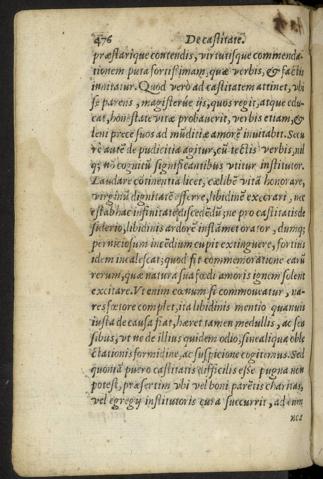 476 De castitate.
præstarique contendis, virtutisque commenda-
tionem puta fortissimam, quæ verbis, & factis
innitatur. Quod verò ad castitatem attinet, vbi
se parens, magisterue ijs, quos regit, atque edu-
cat, honestate vitæ probauerit, verbis etiam, &
leni prece suos ad mūditiæ amorē inuitabit. Secu
rè autē de pudicitia agitur, cū tectis verbis, nil
q; nō cognitū significantibus vtitur institutor.
Laudare cōtinentiā licet, cælibē vitā honorare,
virginū dignitatē efferre, libidinē execrari, nec
est ab hac infinitate discedēdū; ne pro castitatis de
siderio, libidinis ardorē instāmet orator, dumq;
perniciosum incēdium cupit extinguere, fortius
idem incalescat; quod fit commemoratione earū
rerum, quæ natura sua fœdi amoris ignem solent
excitare. Vt enim cœnum si commoueatur, na-
res fœtore complet, ita libidinis mentio quamuis
iusta de causa fiat, hæret tamen medullis, ac sen
sibus, vt ne de illius quidem odio, sine aliqua oble
ctationis formidine, ac suspicione cogitemus. Sed
quoniā puero castitatis difficilis esse pugna non
potest, præsertim vbi vel boni parētis charitas,
vel egregij institutoris cura succurrit, ad eum